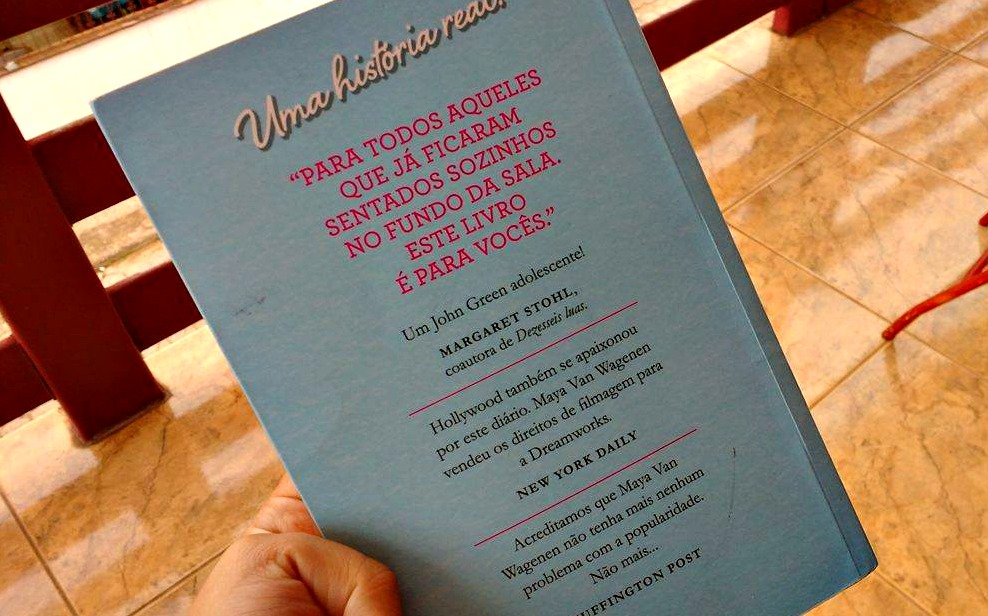 Uma história real!
“PARA TODOS AQUELES
QUE JÁ FICARAM
SENTADOS SOZINHOS
NO FUNDO DA SALA.
ESTE LIVRO
É PARA VOCÊS.”
Um John Green adolescente!
MARGARET STOHL,
coautora de Dezesseis luas.
Hollywood também se apaixonou
por este diário. Maya Van Wagenen
vendeu os direitos de filmagem para
a Dreamworks.
NEW YORK DAILY
Acreditamos que Maya Van
Wagenen não tenha mais nenhum
problema com a popularidade.
Não mais...
UFFINGTON POST